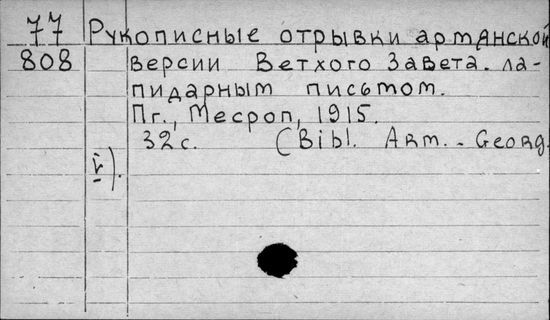 77 Рукописные отрывки армянской
808 версии Ветхого Завета лапидарным письмом.
Пг., Месроп, 1915.
32 с. (Bibl. Arm. - Georg.
V).